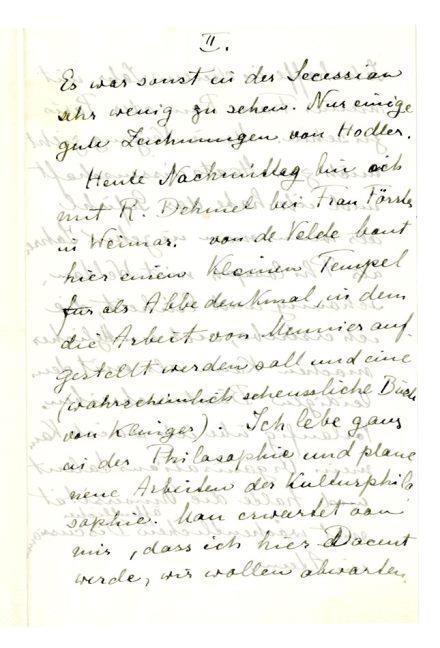 II.
Es war sonst in der Secession
sehr wenig zu sehen. Nur einige
gute Zeichnungen von Hodler.
Heute Nachmittag bin ich
mit R. Dehmel bei Frau Förster
in Weimar. van de Velde baut
hier einen kleinen Tempel
für als Abbedenkmal, in dem
die Arbeit von Meunier auf-
gestellt werden soll und eine
(wahrscheinlich scheussliche Büste
von Klinger). Ich lebe ganz
in der Philosophie und plane
neue Arbeiten der Kulturphilo
sophie. Man erwartet von
mir, dass ich hier Docent
werde, wir wollen abwarten.